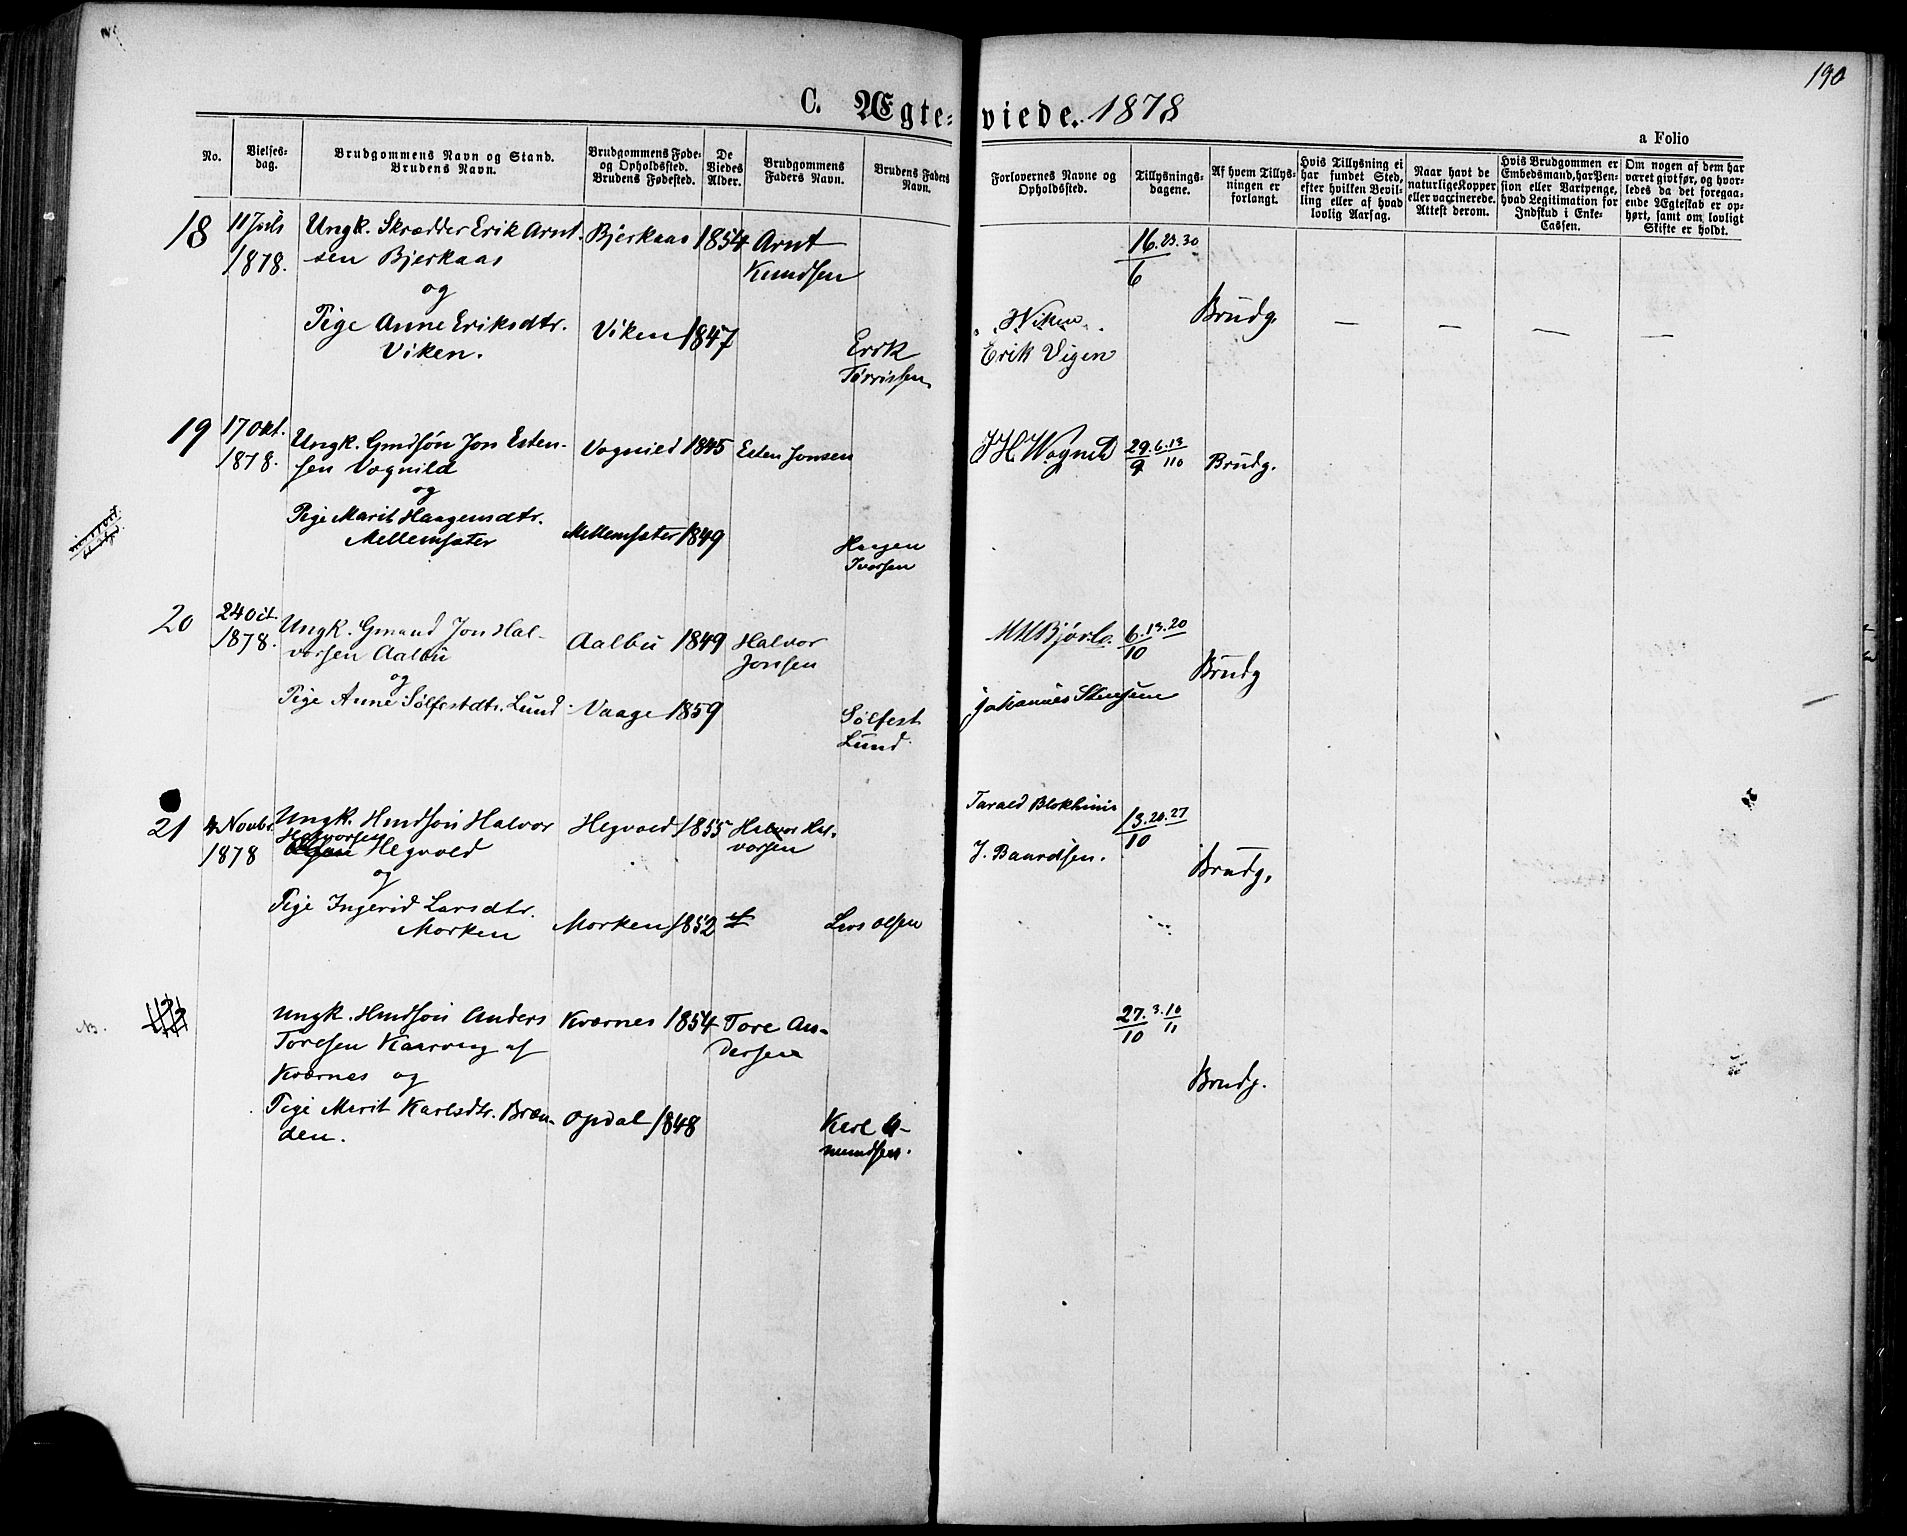 190
C. Ægte- viede. 1878
a Folio
No.
Vielses-
dag.
Brudgommens Navn og Stand.
Brudens Navn.
Brudgommens Føde-
og Opholdssted.
Brudens Fødested.
De
Viedes
Alder.
Brudgommens
Faders Navn.
Brudens Faders
Navn.
Forlovernes Navne og
Opholdssted.
Tillysnings-
dagene.
Af hvem Tillys-
ningen er
forlangt.
Hvis Tillysning ei
har fundet Sted,
efter hvilken Bevil-
ling eller af hvad
lovlig Aarsag.
Naar havt de
naturlige Kopper
eller vaccinerede.
Attest derom.
Hvis Brudgommen er
Embedsmand, har Pen-
sion eller Vartpenge,
hvad Legitimation for
Indskud i Enke-
Cassen.
Om nogen af dem har
været gift før, og hvor-
ledes da det foregaa-
ende Ægteskab er op-
hørt, samt om lovligt
Skifte er holdt.
18 11 Juli Ungk. Skrædder Erik Arnt- Bjerkaas 1854 Arnt 16. 23. 30
1878. sen Bjerkaas Knudsen 6
og
Pige Anne Eriksdtr. Viken 1847 Wiken Brudg. — — — —
Viken. Erik Erik Vigen
Tørrissen
19 17 Okt. Ungk. Gmdsøn Jon Esten- Vognild 1845 Esten Jonsen 29. 6. 13
1878. sen Vognild 9 10 Brudg.
og
Pige Marit Haagensdtr. Mellemsæter 1849
Mellemsæter Haagen
Ivorsen
20 24 Oct. Ungk. Gmand Jon Hal- Aalbu 1849 Halvor 6. 13. 20
1878. vorsen Aalbu Jonsen 10
og Brudg
Pige Anne Sølfestdtr. Lund Vaage 1859 Johannes
Sølfest
Lund
21 4 Novbr. Ungk. Hmdsøn Halvor Hegvold 1855 Halvor Hal- 13. 20. 27
1878 Halvorsen Hegvold vorsen J. Baardsen. 10
og Brudg.
Pige Ingerid Larsdtr. Morken 1852 Lars Olsen
Morken
NB. Ungk. Hmdsøn Anders Kværnes 1854 Tore An- 27. 3. 10
Toresen Kaarvag af dersen 10 11
Kværnes og Brudg.
Pige Marit Karlsdtr. Bræn- Opdal 1848 Karl A-
den. mundsen.